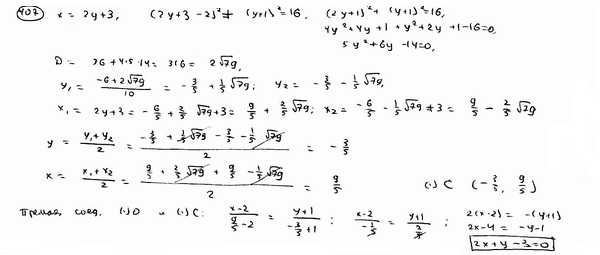 407 x = 2y+3, (2y+3-2)²+ (y+1)²=16, (2y+1)²+ (y+1)²=16,
4y²+4y+1+y²+2y+1-16=0,
5y²+6y-14=0,
D = 36+4·5·14= 316= 2√79,
y₁ = (-6+2√79)/10 = -3/5 + 1/5√79; y₂ = -3/5 - 1/5√79,
x₁ = 2y+3 = -6/5 + 2/5 √79+3 = 9/5 + 2/5√79; x₂ = -6/5 - 1/5√79+3 = 9/5 - 2/5√79
y = (y₁+y₂)/2 = (-3/5 + 1/5√79 - 3/5 - 1/5√79)/2 = -3/5
x = (x₁+x₂)/2 = (9/5 + 2/5√79 + 9/5 - 1/5√79)/2 = 9/5 (·) C (-3/5, 9/5)
Прямая, соед. (·)O и (·)C: (x-2)/(9/5-2) = (y+1)/(-3/5+1); (x-2)/(-1/5) = (y+1)/(2/5); 2(x-2) = -(y+1)
2x-4 = -y-1
2x+y-3=0